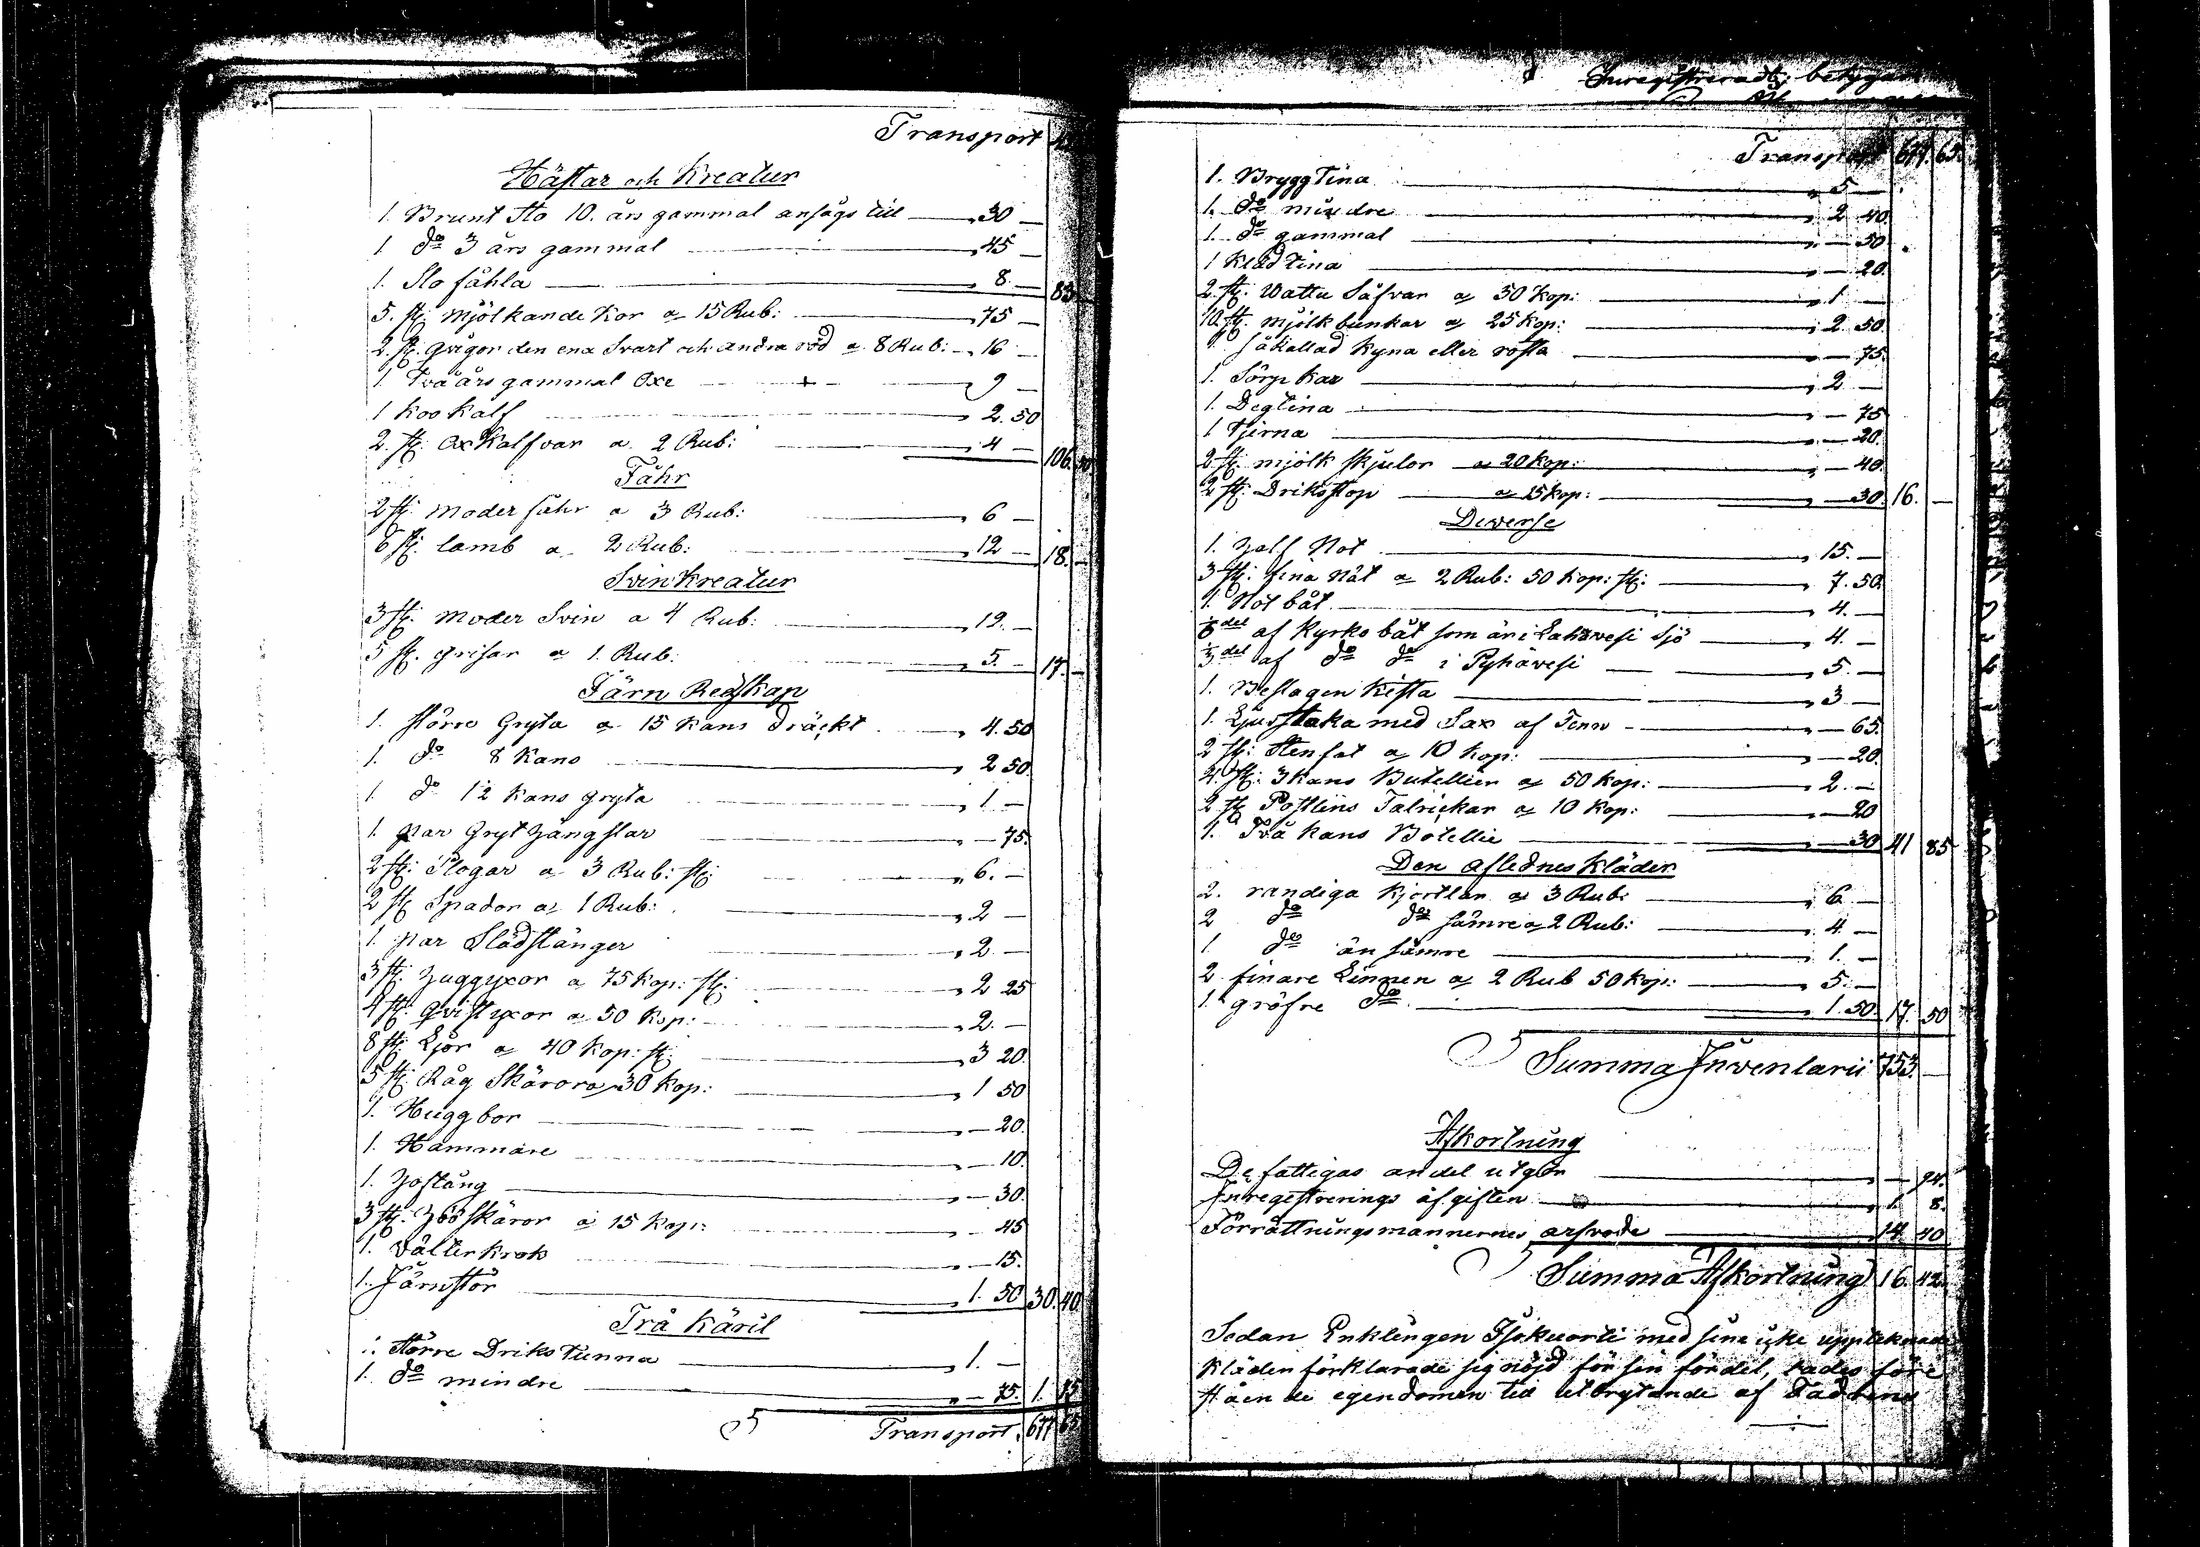 Transport
Hästar och Kreatur
1. Brunt Sto 10. års gammal ansågs till 30 —
1 do 3 års gammal 45 —
1. Sto fåhla 8. — 83
5. st: mjölkande Kor a 15 Rub: 75 —
2. st: qvigor den ena Svart och andra röd a 8 Rub: 16 —
1 Två års gammal Oxe 9 —
1 Koo Kalf 2. 50
2. st: Ox Kalfvar a 2 Rub: 4 — 106. 50
Fåhr
2 st: moder fåhr a 3 Rub: 6 —
6 st: lamb a 2 Rub: 12 — 18. —
Svinkreatur
3 st: moder Svin a 4 Rub: 12. —
5 st. grisar a 1. Rub: 5. — 17. —
Järn Redskap
1. större Gryta a 15 kans dräckt 4. 50
1. do 8 kans 2 50.
1 do 1 2 kans gryta 1 —
1. par Gryt — 75.
2 st: Plogar a 3 Rub: st: 6. —
2 st Spador a 1 Rub: 2 —
1. par Slädstänger 2. —
3 st: Huggyxor a 75 Kop: st: 2 25
4 st: qvistyxor a 50 Kop: 2. —
8 st: Ljor a 40 Kop: st: 3 20.
5 st: Råg Skäror a 30 Kop: 1 50
1. Huggbor — 20.
1. Hammare — 10.
1. — 30.
3 st: Höö Skäror a 15 Kop: — 45
1. — 15.
1. Järnstör 1. 50 30. 40.
Trä Käril
1. större Driks Tunna 1. —
1. do mindre — 75. 1. 75
Transport. 677 65
Inregistreradt; betygar
Transport 677. 65.
1. Bryggtina 5 —
1. do mindre 2 40.
1. do gammal — 50
1 Kläd tina — 20.
2. st: Wattu Såfvar a 50 Kop: 1 —
10 st: mjölk bunkar a 25 Kop: 2. 50.
1 såkallad Kyna eller rosta — 75.
1. Sörp kar 2 —
1. Degtina — 75
1 Tjerna — 20.
2 st: mjölk skjulor a 20 Kop: — 40.
2 st: Driksstop a 15 Kop: — 30. 16. —
Diverse
1. half Not 15. —
3 st: fina Nät a 2 Rub: 50 Kop: st: 7. 50.
1. Not båt 4. —
del af Kyrko båt som är i sjö 4. —
1/3 del af do do i Pyhävesi 5. —
1. Beslagen Kista 3 —
1. Ljusstaka med Sax af Tenn — 65.
2 st: Stenfat a 10 Kop: — 20.
4. st: 3 kans Butellier a 50 Kop: 2. —
2 st Postlins Talrickar a 10 Kop: — 20
1. Två kans Botellie — 30 41 85
Den aflednes kläder
2. randiga Kjortlar a 3 Rub: 6. —
2 do do sämre a 2 Rub: 4. —
1 do än sämre 1. —
2 finare Linnen a 2 Rub 50 Kop: 5. —
1. gröfre do 1. 50. 17. 50
Summa Inventarii 753. —
Afkortning
De fattigas andel utgör — 94.
Inregestrerings afgiften 1. 8.
Förrättningsmannernes arfvode 14. 40
Summa Afkortning 16. 42.
Sedan Enklingen med sine icke upptecknade
kläder förklarade sig nöjd för sin fördel, tades före
stående egendomen till utbrytande af Fadrens